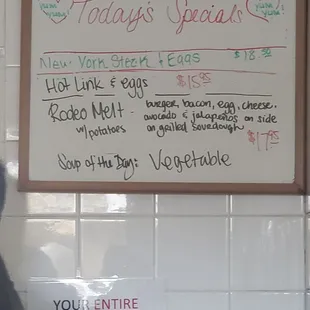 yum yum!
Today's Specials
yum yum!
New York Steak & Eggs $18.50
Hot Link & eggs $15.95
Rodeo Melt - burger, bacon, egg, cheese,
w/potatoes avocado & jalapeños on side
on grilled sourdough $17.95
Soup of the Day: Vegetable
YOUR ENTIRE